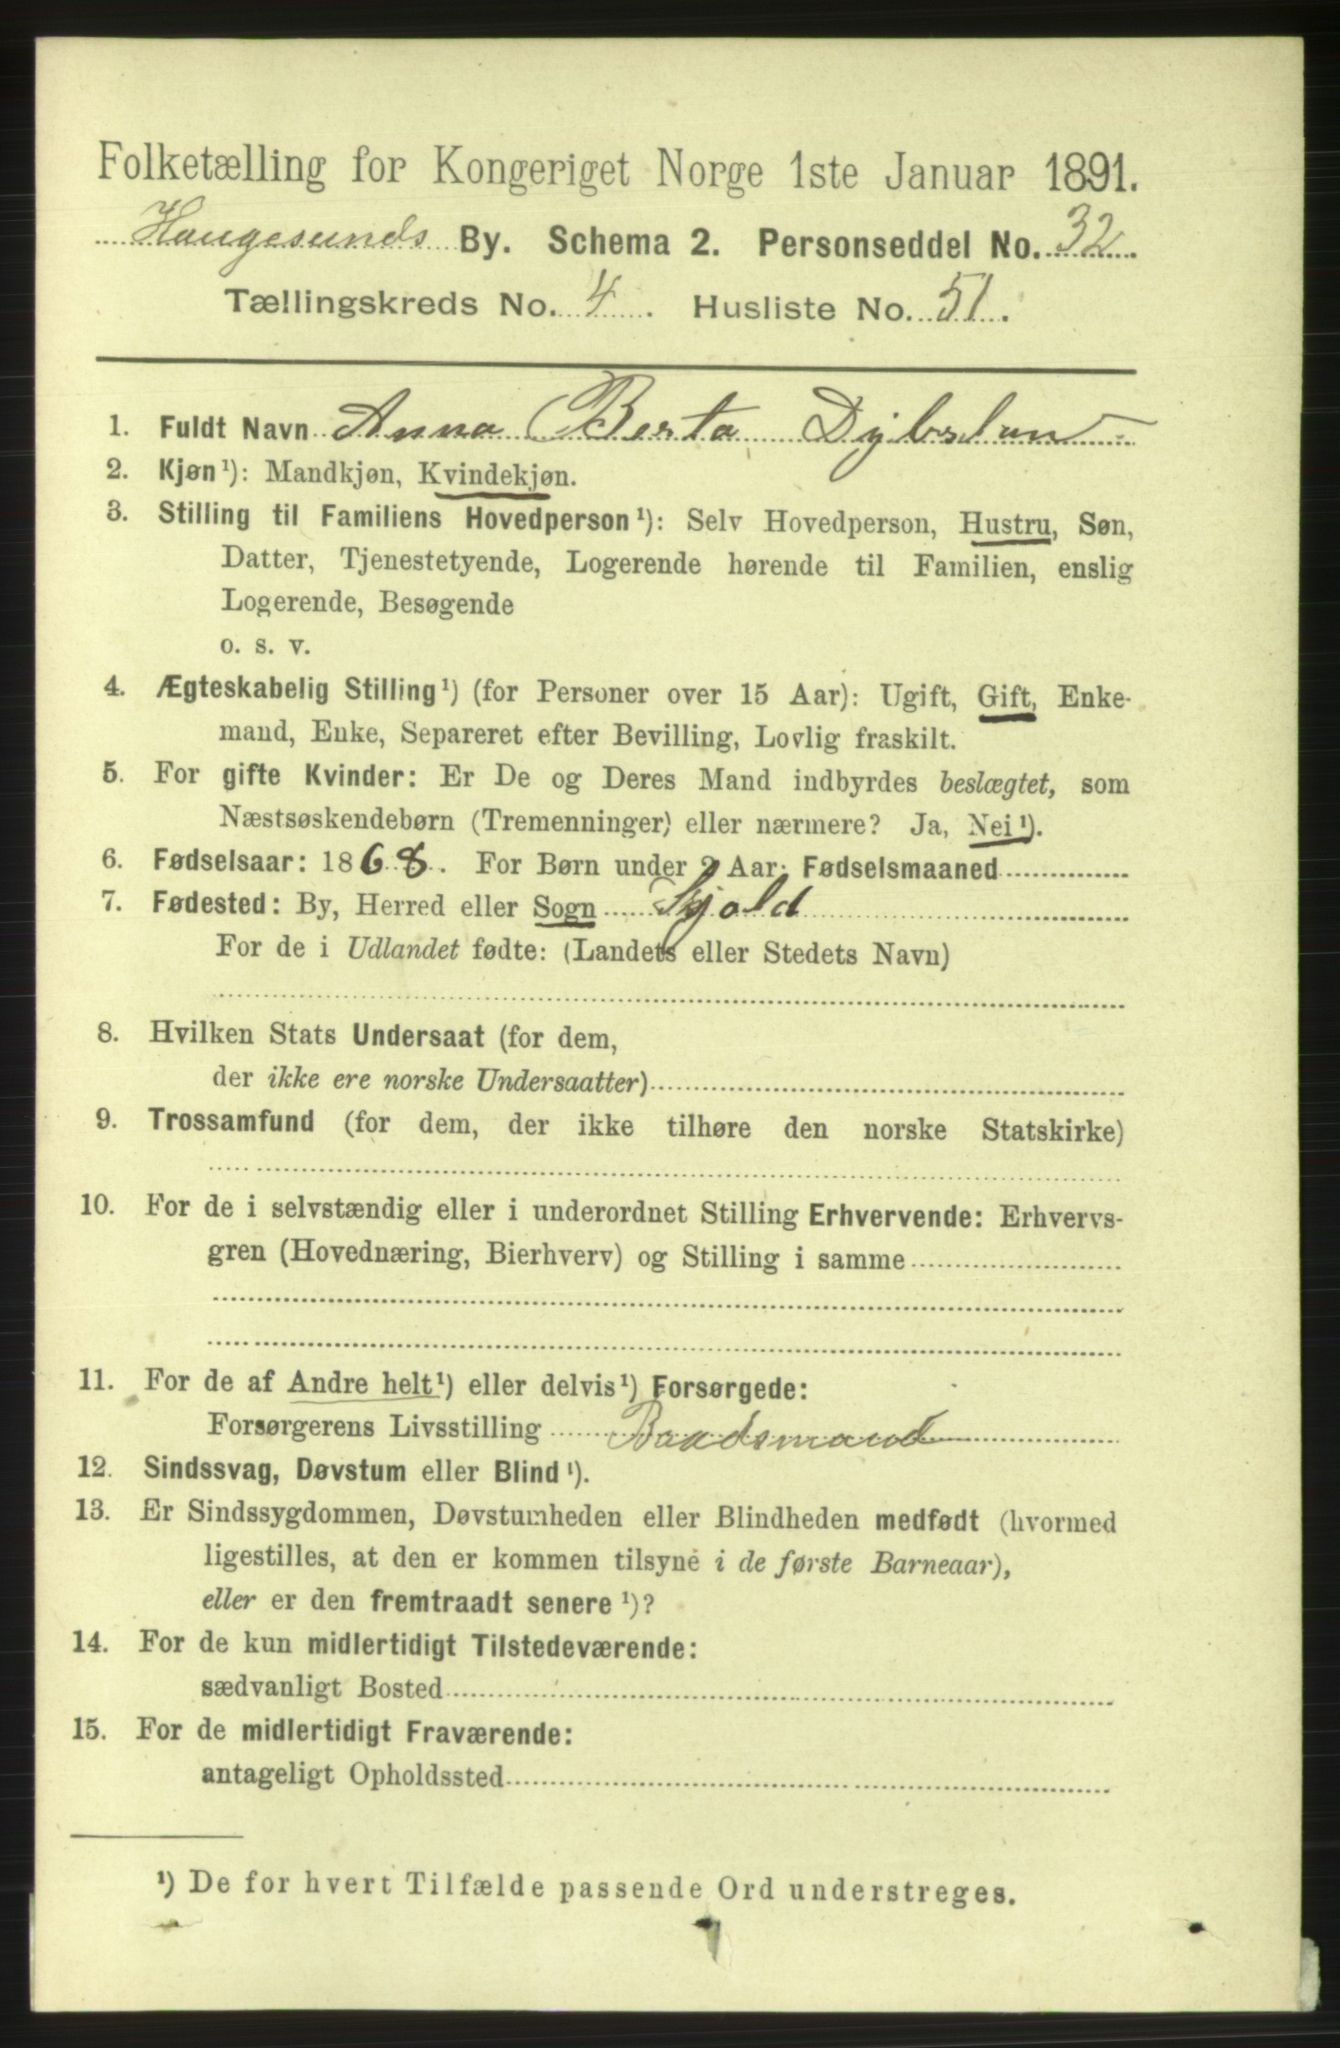 Folketælling for Kongeriget Norge 1ste Januar 1891.
Haugesunds By. Schema 2. Personseddel No. 32.
Tællingskreds No. 4. Husliste No. 51.
1. Fuldt Navn Anna Berta
2. Kjøn¹): Mandkjøn, Kvindekjøn.
3. Stilling til Familiens Hovedperson¹): Selv Hovedperson, Hustru, Søn,
Datter, Tjenestetyende, Logerende hørende til Familien, enslig
Logerende, Besøgende
o. s. v.
4. Ægteskabelig Stilling¹) (for Personer over 15 Aar): Ugift, Gift, Enke-
mand, Enke, Separeret efter Bevilling, Lovlig fraskilt.
5. For gifte Kvinder: Er De og Deres Mand indbyrdes beslægtet, som
Næstsøskendebørn (Tremenninger) eller nærmere? Ja, Nei¹).
6. Fødselsaar: 1868. For Børn under 2 Aar: Fødselsmaaned
7. Fødested: By, Herred eller Sogn Skjold
For de i Udlandet fødte: (Landets eller Stedets Navn)
8. Hvilken Stats Undersaat (for dem,
der ikke ere norske Undersaatter)
9. Trossamfund (for dem, der ikke tilhøre den norske Statskirke)
10. For de i selvstændig eller i underordnet Stilling Erhvervende: Erhvervs-
gren (Hovednæring, Bierhverv) og Stilling i samme
11. For de af Andre helt¹) eller delvis¹) Forsørgede:
Forsørgerens Livsstilling Baadsmand
12. Sindssvag, Døvstum eller Blind¹).
13. Er Sindssygdommen, Døvstumheden eller Blindheden medfødt (hvormed
ligestilles, at den er kommen tilsyne i de første Barneaar),
eller er den fremtraadt senere¹)?
14. For de kun midlertidigt Tilstedeværende:
sædvanligt Bosted
15. For de midlertidigt Fraværende:
antageligt Opholdssted
¹) De for hvert Tilfælde passende Ord understreges.